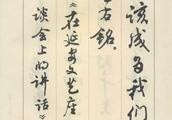 该成为我们
右铭。
《在延安文艺座
谈会上的讲话》